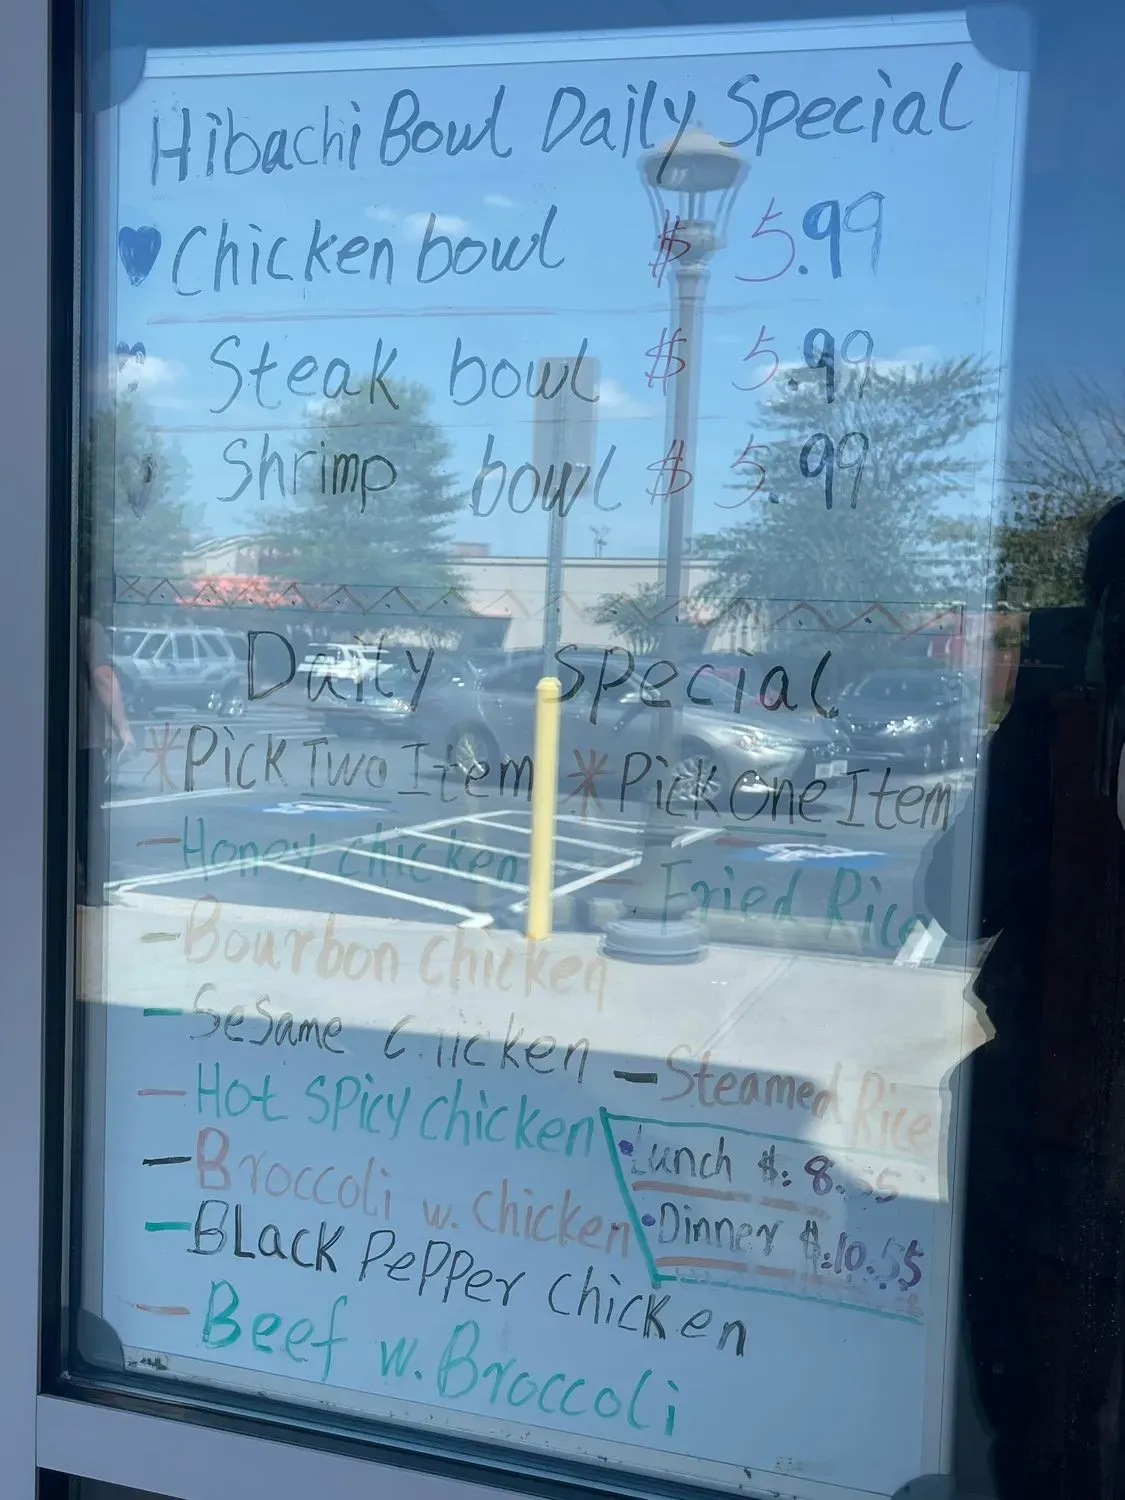 Hibachi Bowl Daily Special
Chicken bowl $ 5.99
Steak bowl $ 5.99
Shrimp bowl $ 5.99
Daily special
*Pick Two Item *Pick One Item
-Honey chicken
- Fried Rice
-Bourbon chicken
-Sesame Chicken
-Steamed Rice
-Hot spicy chicken
•Lunch $: 8.55
-Broccoli w. chicken
•Dinner $:10.55
-BLack PePPer chicken
-Beef w. Broccoli